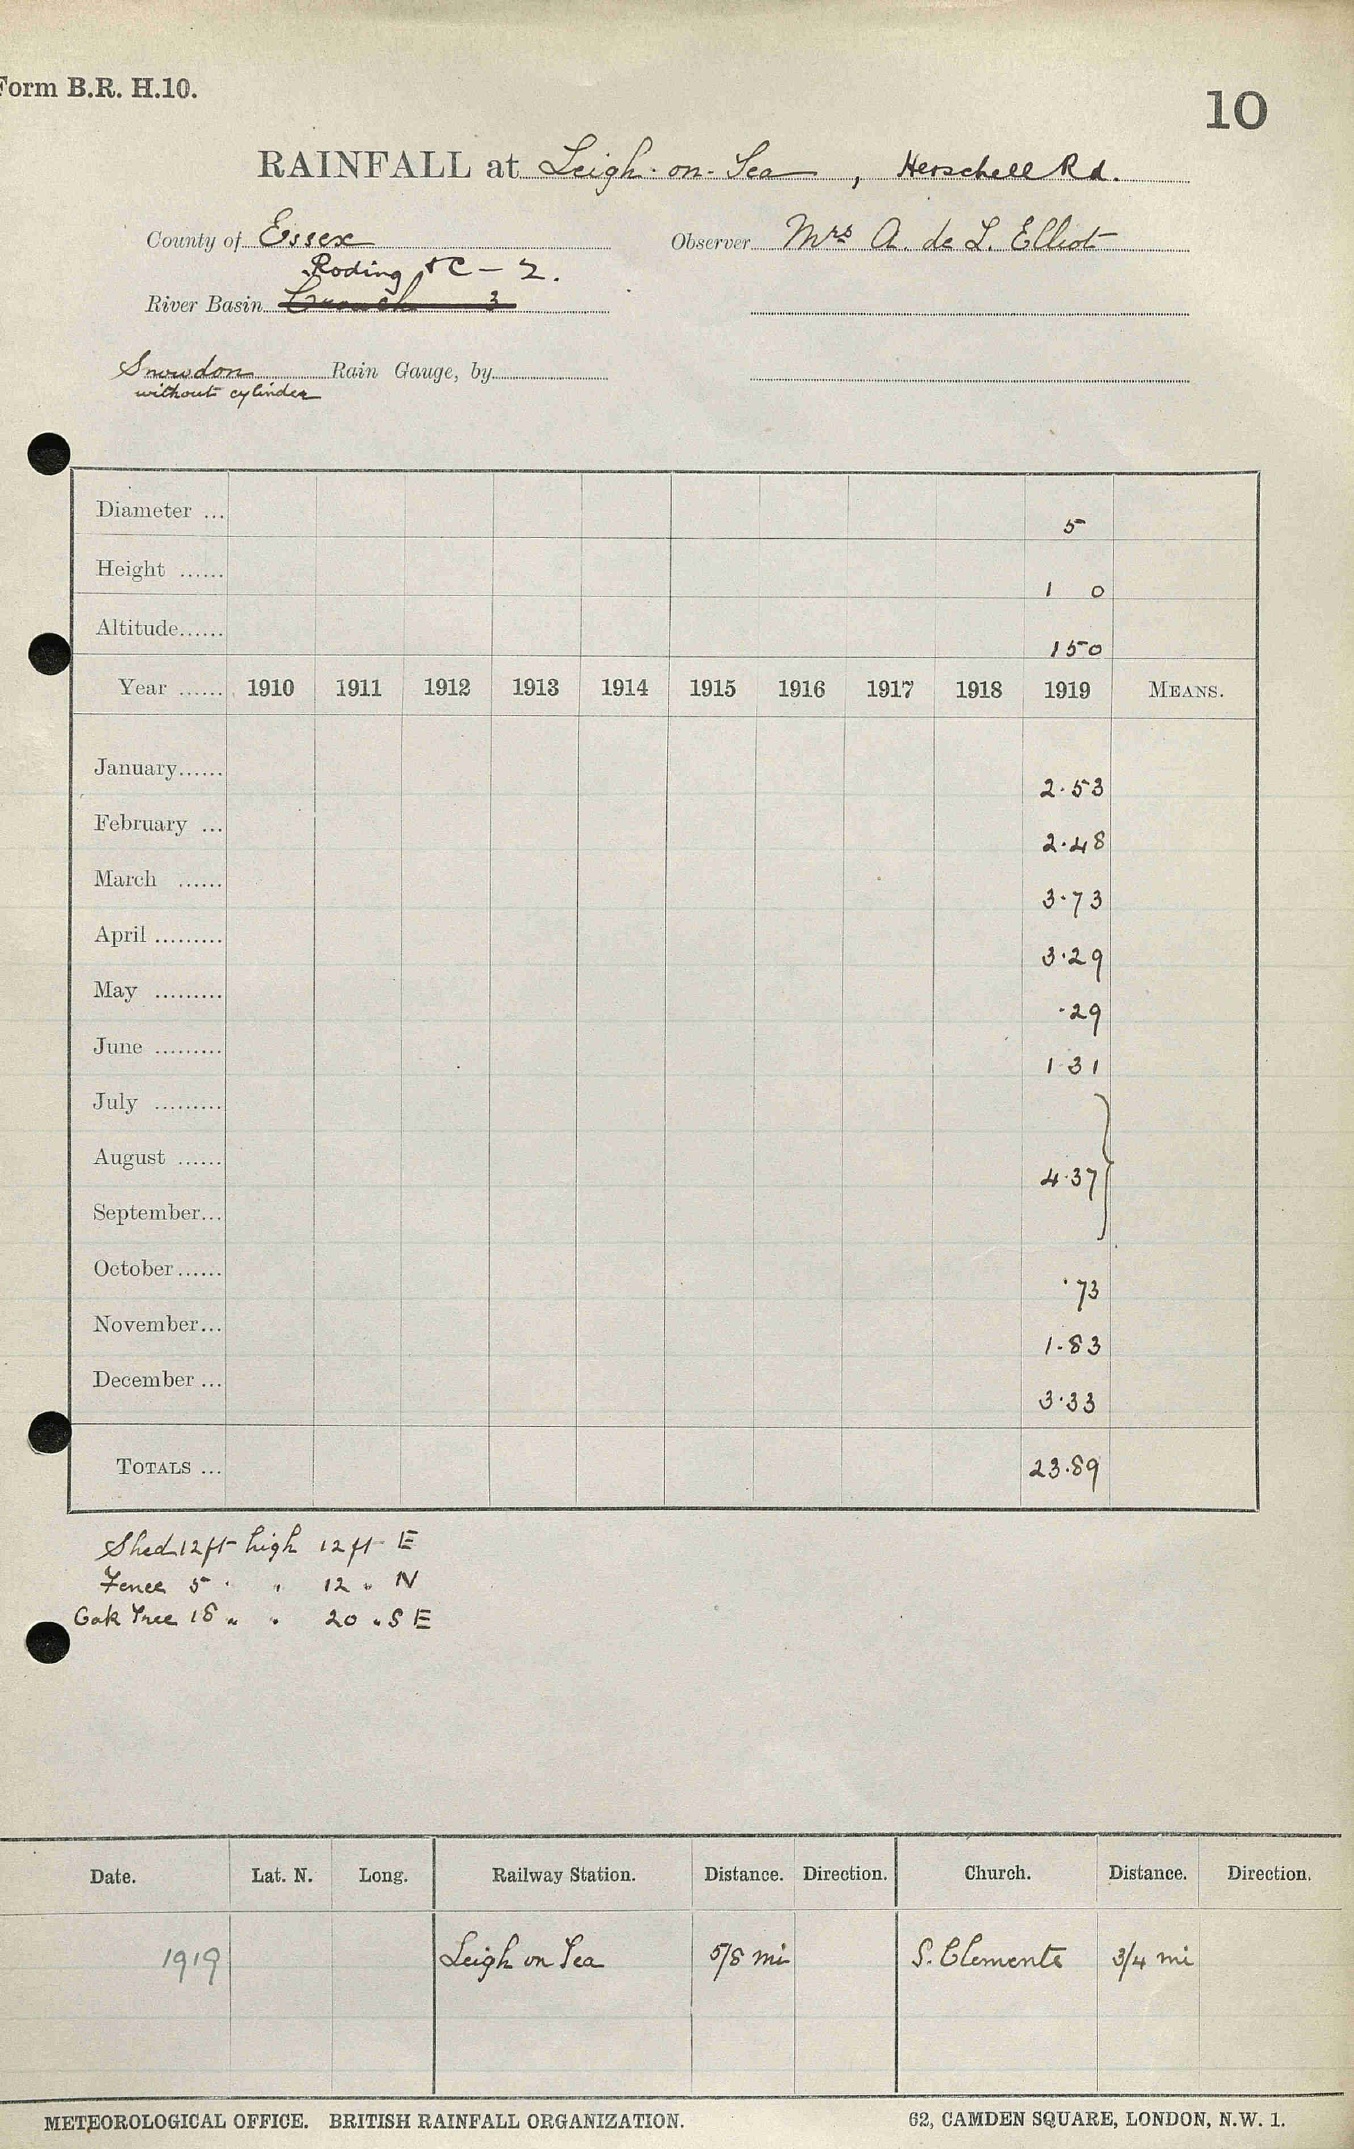 Form B.R. H.10.
10
RAINFALL at Leigh-on-Sea, Herschell Rd.
County of Essex Observer Mrs A. de L. Elliot
Roding &C - 2.
River Basin Crouch 3
Snowdon Rain Gauge, by
without cylinder
Diameter ... 5
Height ...... 1 0
Altitude...... 150
Year ...... 1910 1911 1912 1913 1914 1915 1916 1917 1918 1919 MEANS.
January...... 2.53
February ... 2.48
March ...... 3.73
April ......... 3.29
May ......... .29
June ......... 1 31
July .........
August ...... 4.37 }
September...
October...... .73
November... 1.83
December ... 3.33
TOTALS ... 23.89
Shed 12ft high 12ft E
Fence 5 " " 12 " N
Oak Tree 18 " " 20 " S E
Date. Lat. N. Long. Railway Station. Distance. Direction. Church. Distance. Direction.
1919 Leigh on Sea 5/8 mi S. Clements 3/4 mi
METEOROLOGICAL OFFICE. BRITISH RAINFALL ORGANIZATION. 62, CAMDEN SQUARE, LONDON, N.W. 1.